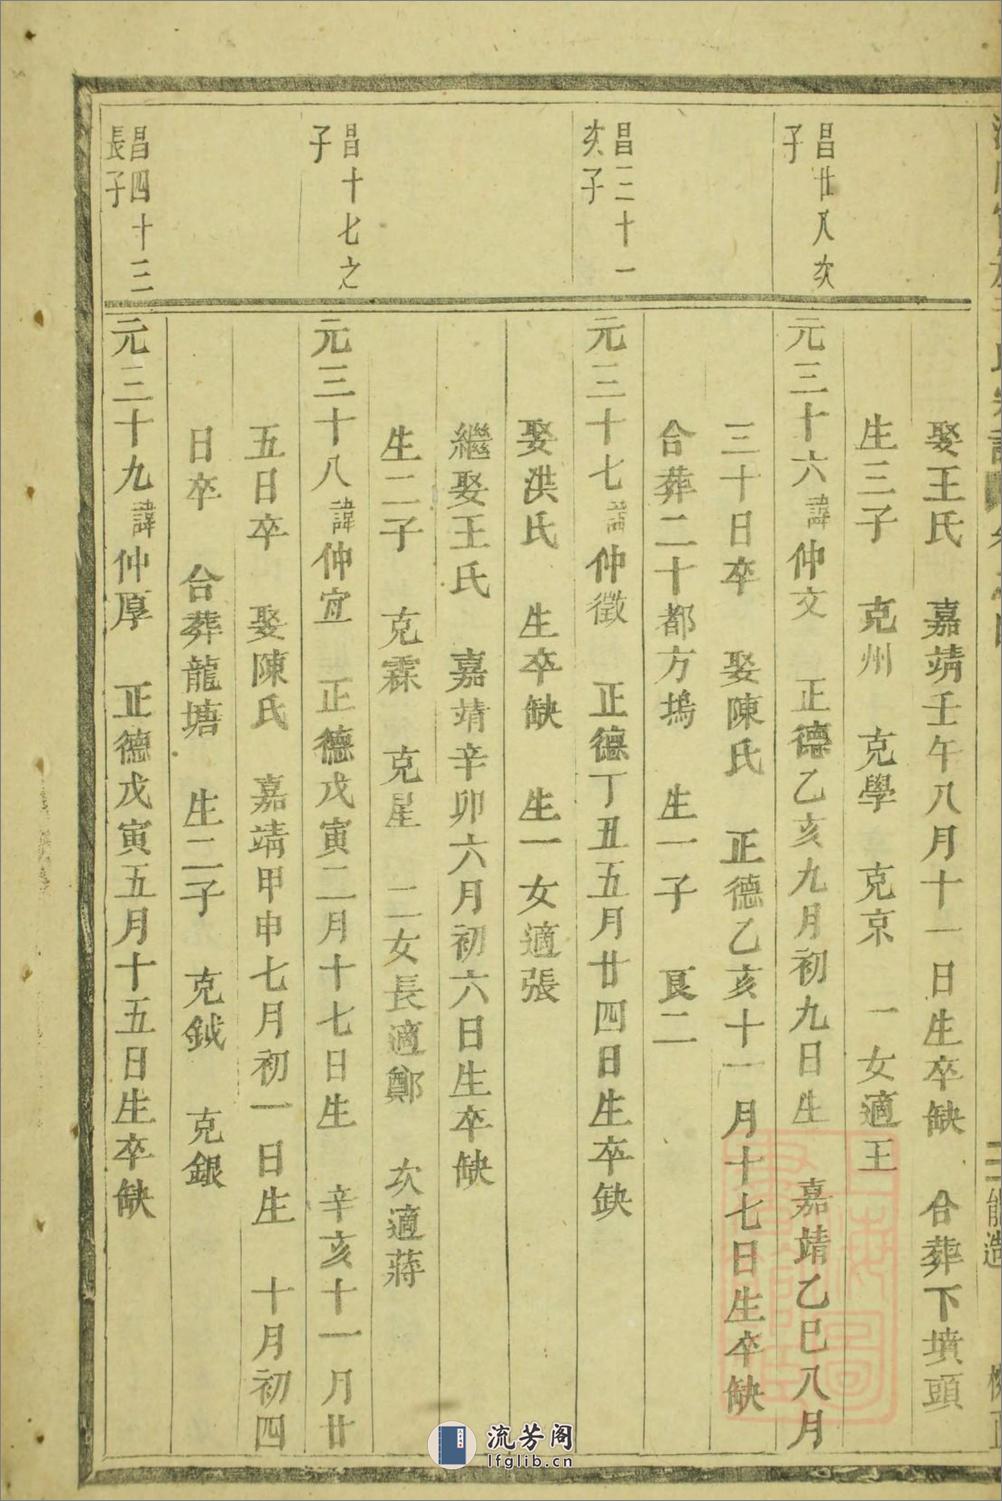 娶王氏　嘉靖壬午八月十一日生卒缺　合葬下墳頭
生三子　克州　克學　克京　一女適王
昌廿八次
子
元三十六諱仲文　正德乙亥九月初九日生　嘉靖乙巳八月
三十日卒　娶陳氏　正德乙亥十一月十七日生卒缺
合葬二十都方塢　生一子　艮二
昌三十一
次子
元三十七諱仲徵　正德丁丑五月廿四日生卒缺
娶洪氏　生卒缺　生一女適張
繼娶王氏　嘉靖辛卯六月初六日生卒缺
生二子　克霖　克星　二女長適鄭　次適蔣
昌十七之
子
元三十八諱仲宜　正德戊寅二月十七日生　辛亥十一月廿
五日卒　娶陳氏　嘉靖甲申七月初一日生　十月初四
日卒　合葬龍塘　生二子　克鉞　克銀
昌四十三
長子
元三十九諱仲厚　正德戊寅五月十五日生卒缺
流芳阁
lfglib.cn